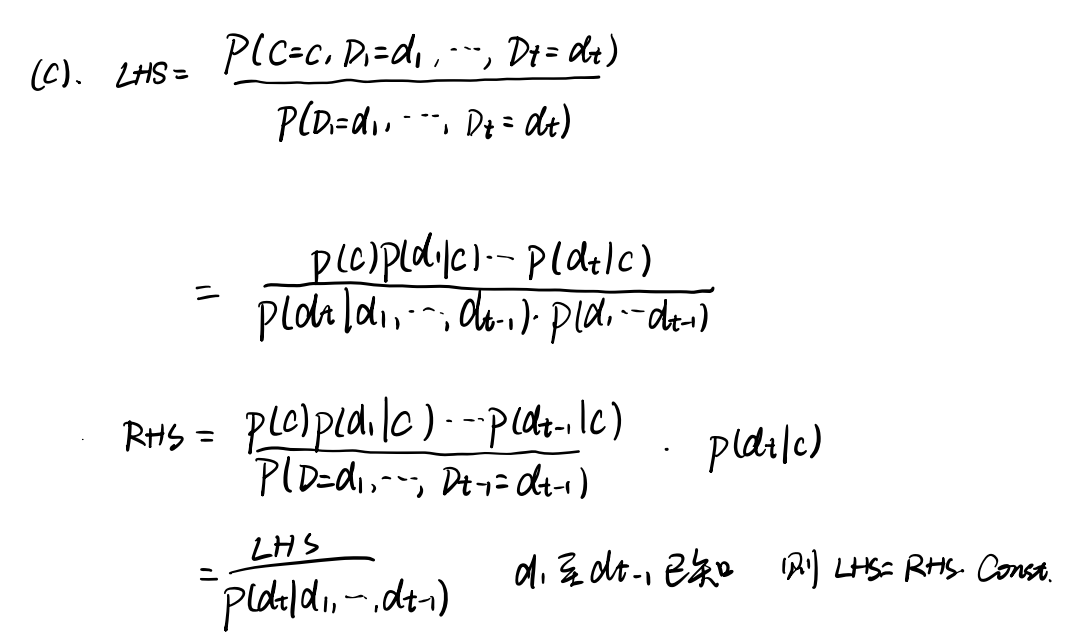 (C). LHS = P(C=c, D₁=d₁, ..., Dt=dt) / P(D₁=d₁, ..., Dt=dt)
= p(c)p(d₁|c)...p(dt|c) / p(dt|d₁, ..., dt-1)·p(d₁...dt-1)
RHS = p(c)p(d₁|c)...p(dt-1|c) / P(D=d₁, ..., Dt-1=dt-1) · p(dt|c)
= LHS / p(dt|d₁, ..., dt-1) d₁至dt-1已知 则 LHS=RHS·Const.